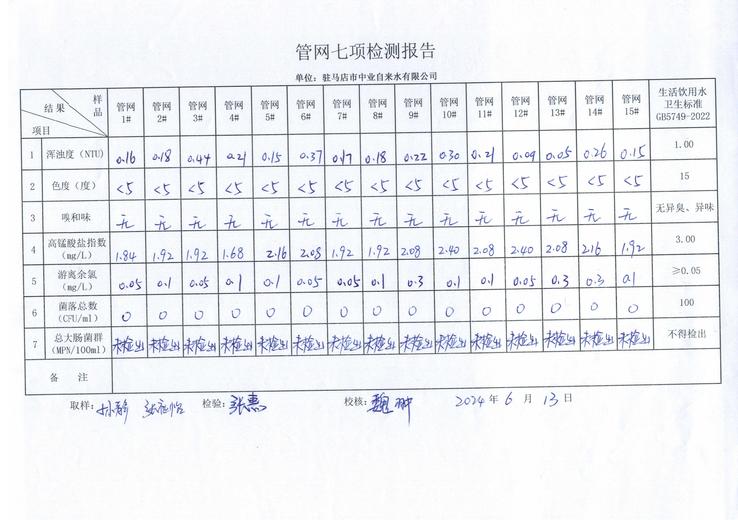 管网七项检测报告
单位：驻马店市中业自来水有限公司
样品 结果 项目 管网1# 管网2# 管网3# 管网4# 管网5# 管网6# 管网7# 管网8# 管网9# 管网10# 管网11# 管网12# 管网13# 管网14# 管网15# 生活饮用水卫生标准GB5749-2022
1 浑浊度（NTU） 0.16 0.18 0.44 0.21 0.15 0.37 0.17 0.18 0.22 0.30 0.21 0.09 0.05 0.26 0.15 1.00
2 色度（度） <5 <5 <5 <5 <5 <5 <5 <5 <5 <5 <5 <5 <5 <5 <5 15
3 嗅和味 无 无 无 无 无 无 无 无 无 无 无 无 无 无 无 无异臭、异味
4 高锰酸盐指数（mg/L） 1.84 1.92 1.92 1.68 2.16 2.08 1.92 1.92 2.08 2.40 2.08 2.40 2.08 2.16 1.92 3.00
5 游离余氯（mg/L） 0.05 0.1 0.05 0.1 0.1 0.05 0.05 0.1 0.3 0.1 0.1 0.05 0.3 0.3 0.1 ≥0.05
6 菌落总数（CFU/ml） 0 0 0 0 0 0 0 0 0 0 0 0 0 0 0 100
7 总大肠菌群（MPN/100ml） 未检出 未检出 未检出 未检出 未检出 未检出 未检出 未检出 未检出 未检出 未检出 未检出 未检出 未检出 未检出 不得检出
备 注
取样： 孙静 检验： 张惠 校核： 魏 2024 年 6 月 13 日